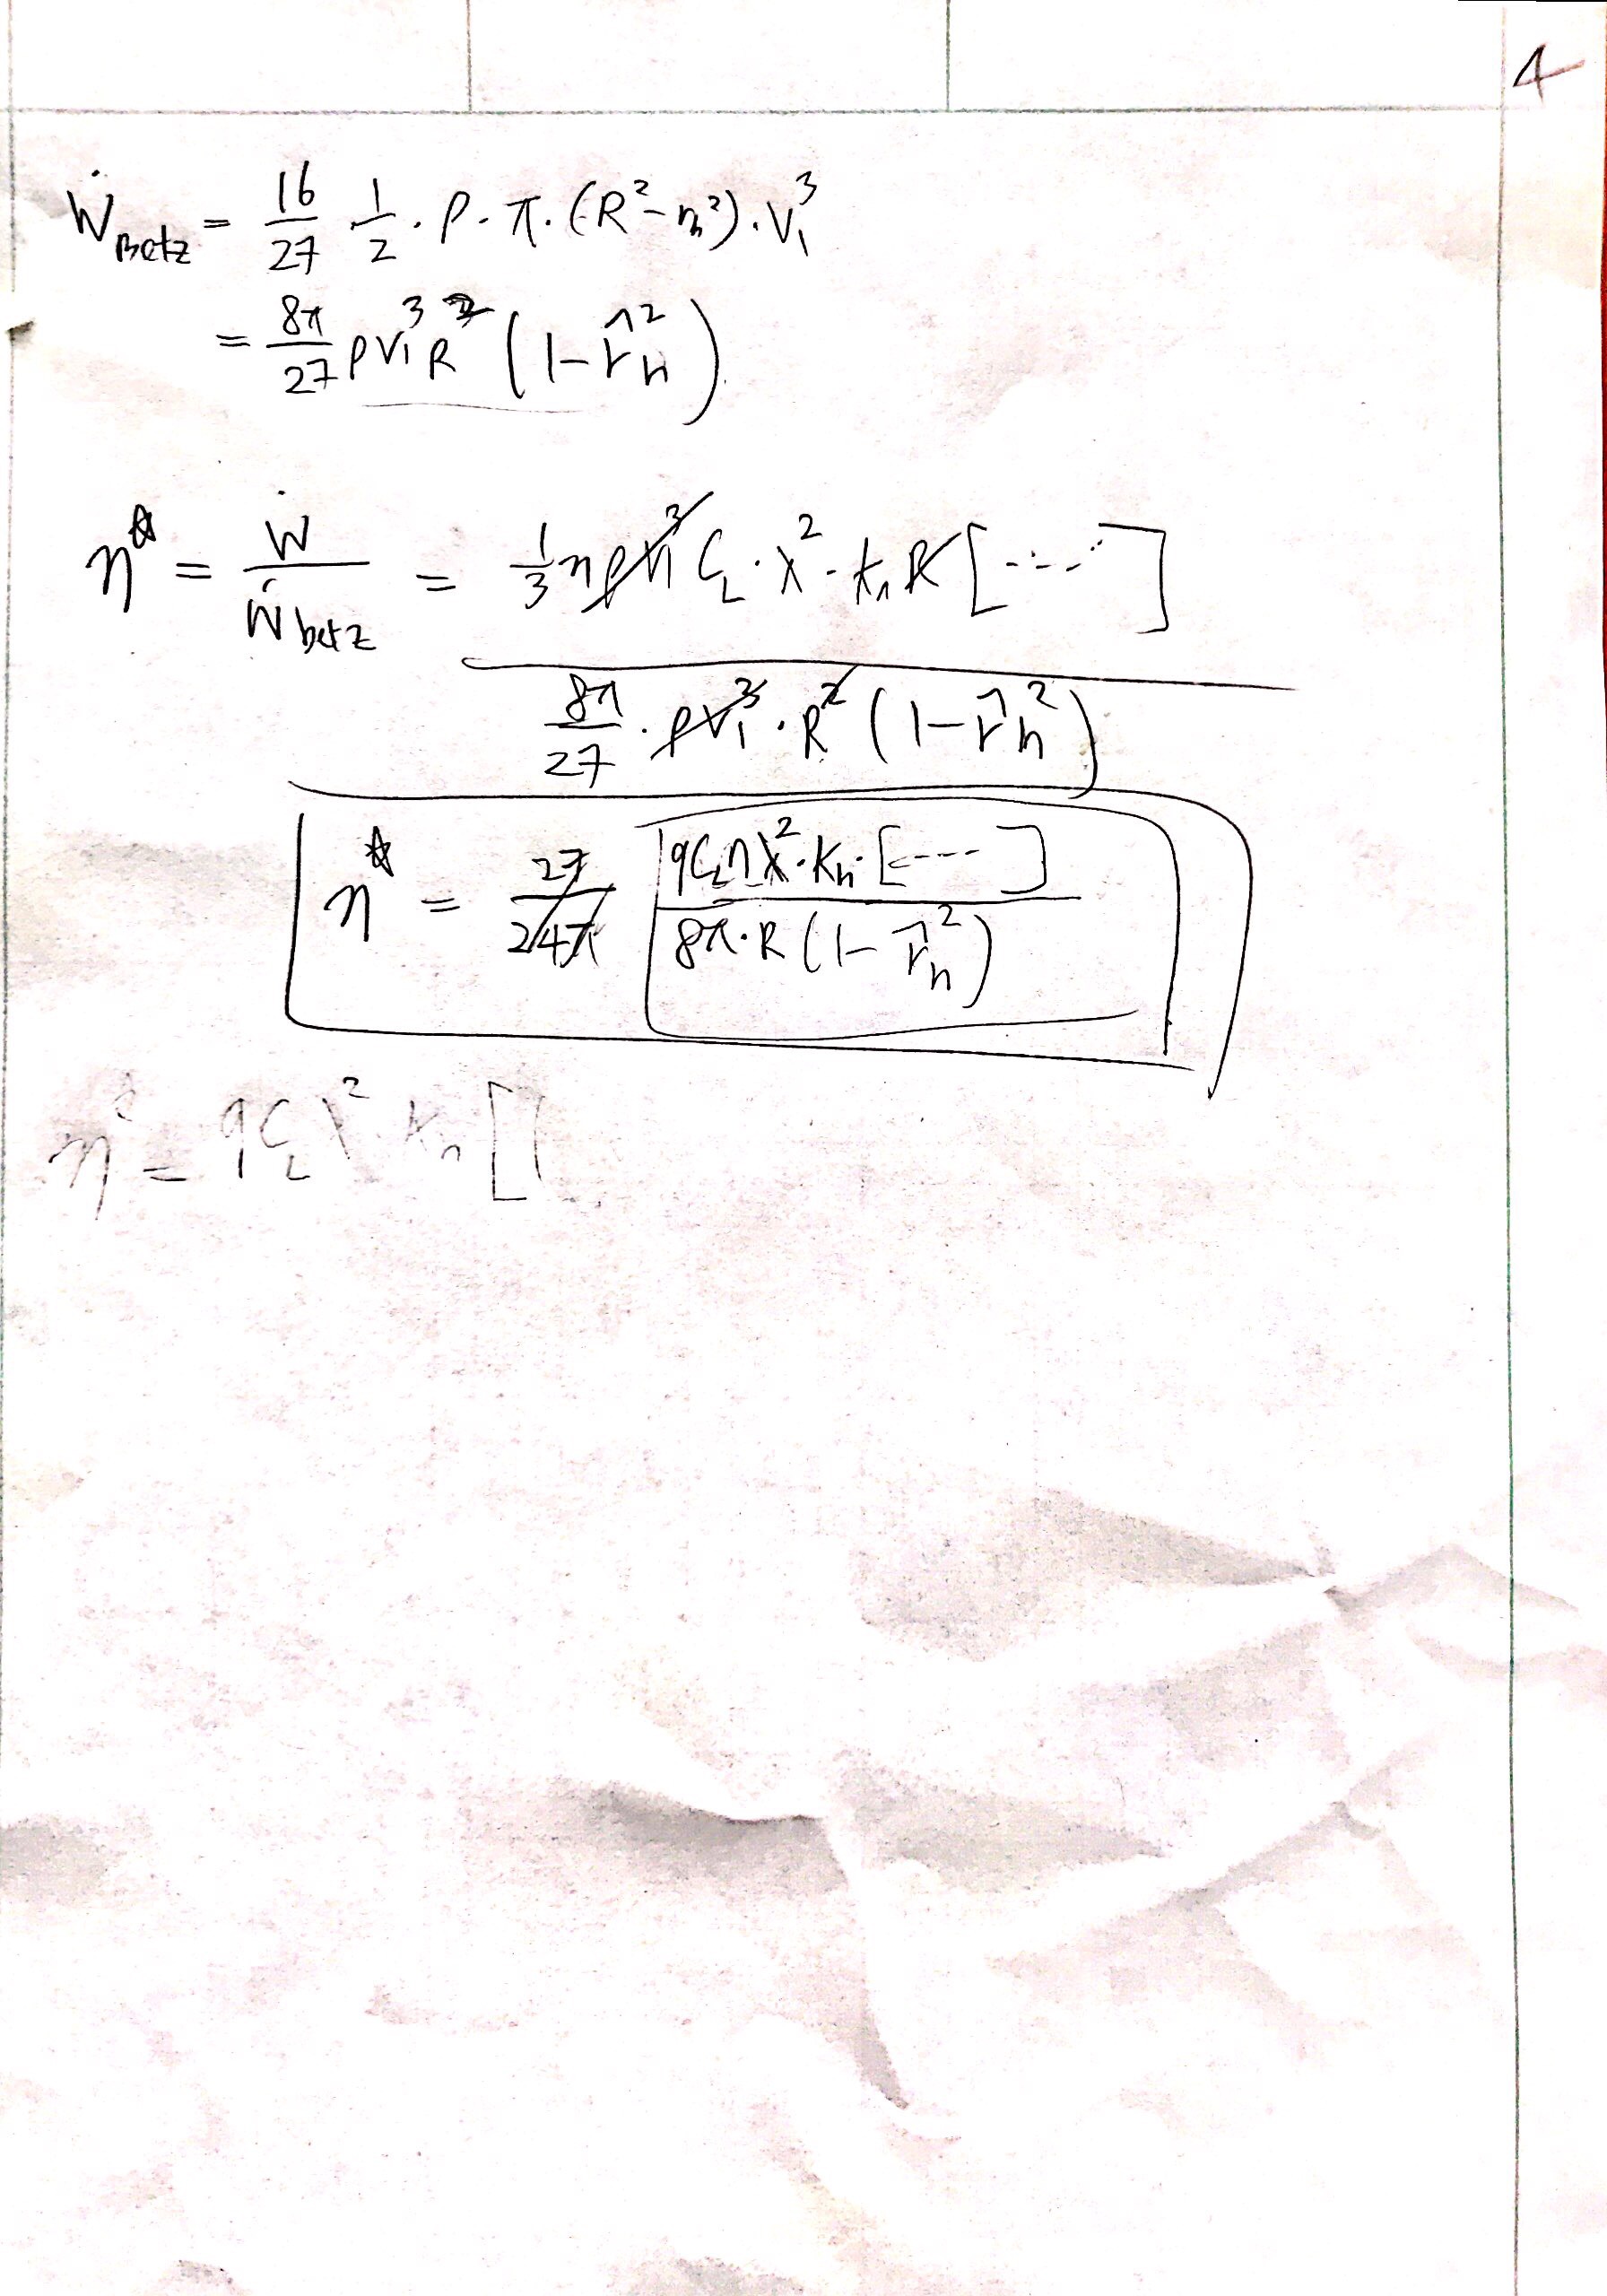 4
Ẇ_Betz = 16/27 1/2 · ρ · π · (R² - r_h²) · V₁³
= 8π/27 ρV₁³R² (1 - r̂_h²)
η* = Ẇ/Ẇ_betz = 1/3 nρV₁³ C_L · λ² · K_h R [-----]
8π/27 · ρV₁³ · R² (1 - r̂_h²)
η* = 27/24π 9C_L nλ² · K_h · [----]
8π · R (1 - r̂_h²)
η* = 9C_L λ² · K_h [(